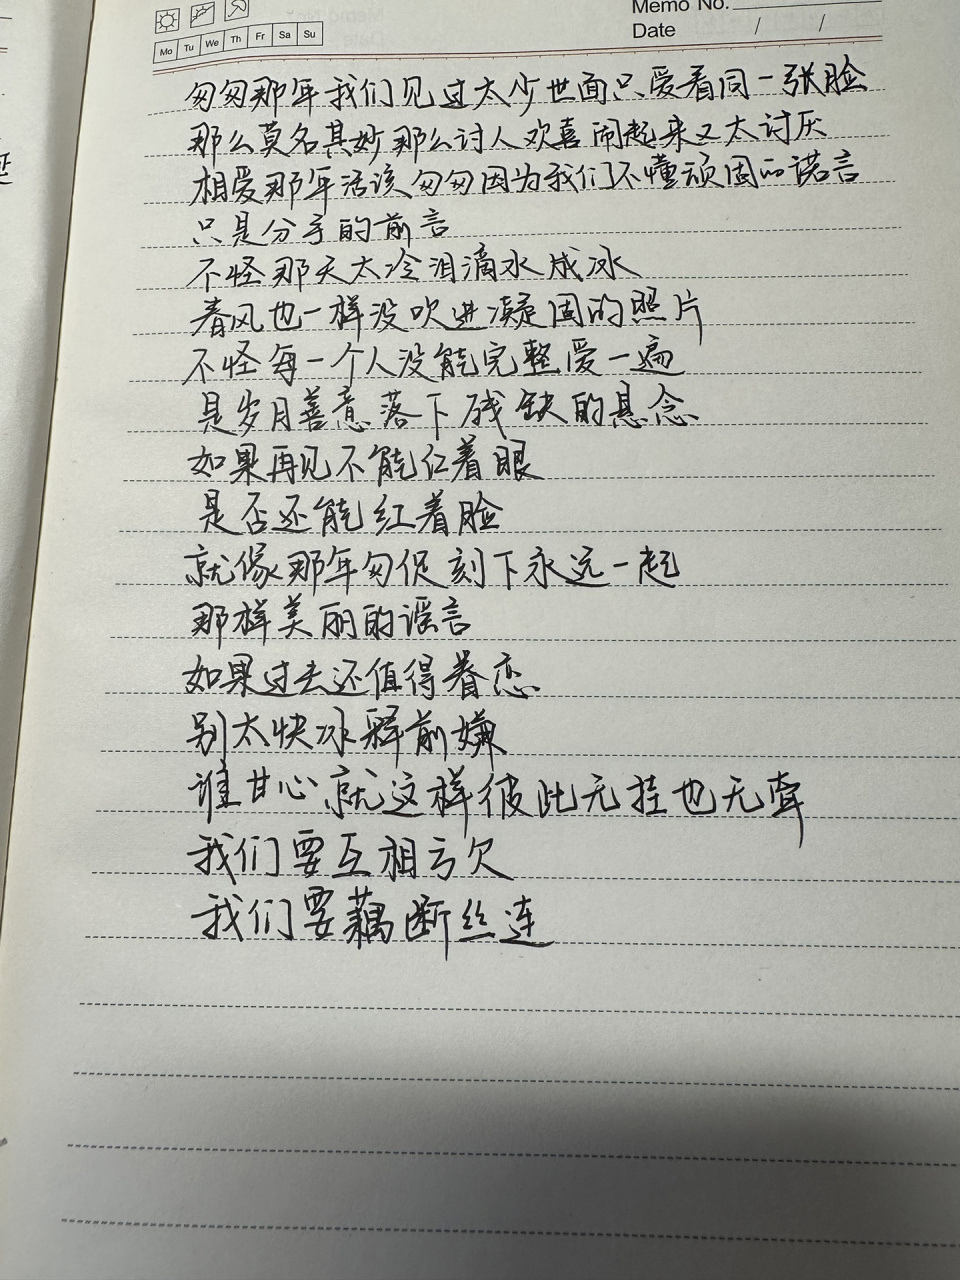 Memo No.
Date / /
Mo Tu We Th Fr Sa Su
匆匆那年我们见过太少世面只爱看同一张脸
那么莫名其妙那么讨人欢喜闹起来又太讨厌
相爱那年活该匆匆因为我们不懂顽固的诺言
只是分手的前言
不怪那天太冷泪滴水成冰
春风也一样没吹进凝固的照片
不怪每一个人没能完整爱一遍
是岁月善意落下残缺的悬念
如果再见不能红着眼
是否还能红着脸
就像那年匆促刻下永远一起
那样美丽的谣言
如果过去还值得眷恋
别太快冰释前嫌
谁甘心就这样彼此无挂也无牵
我们要互相亏欠
我们要藕断丝连